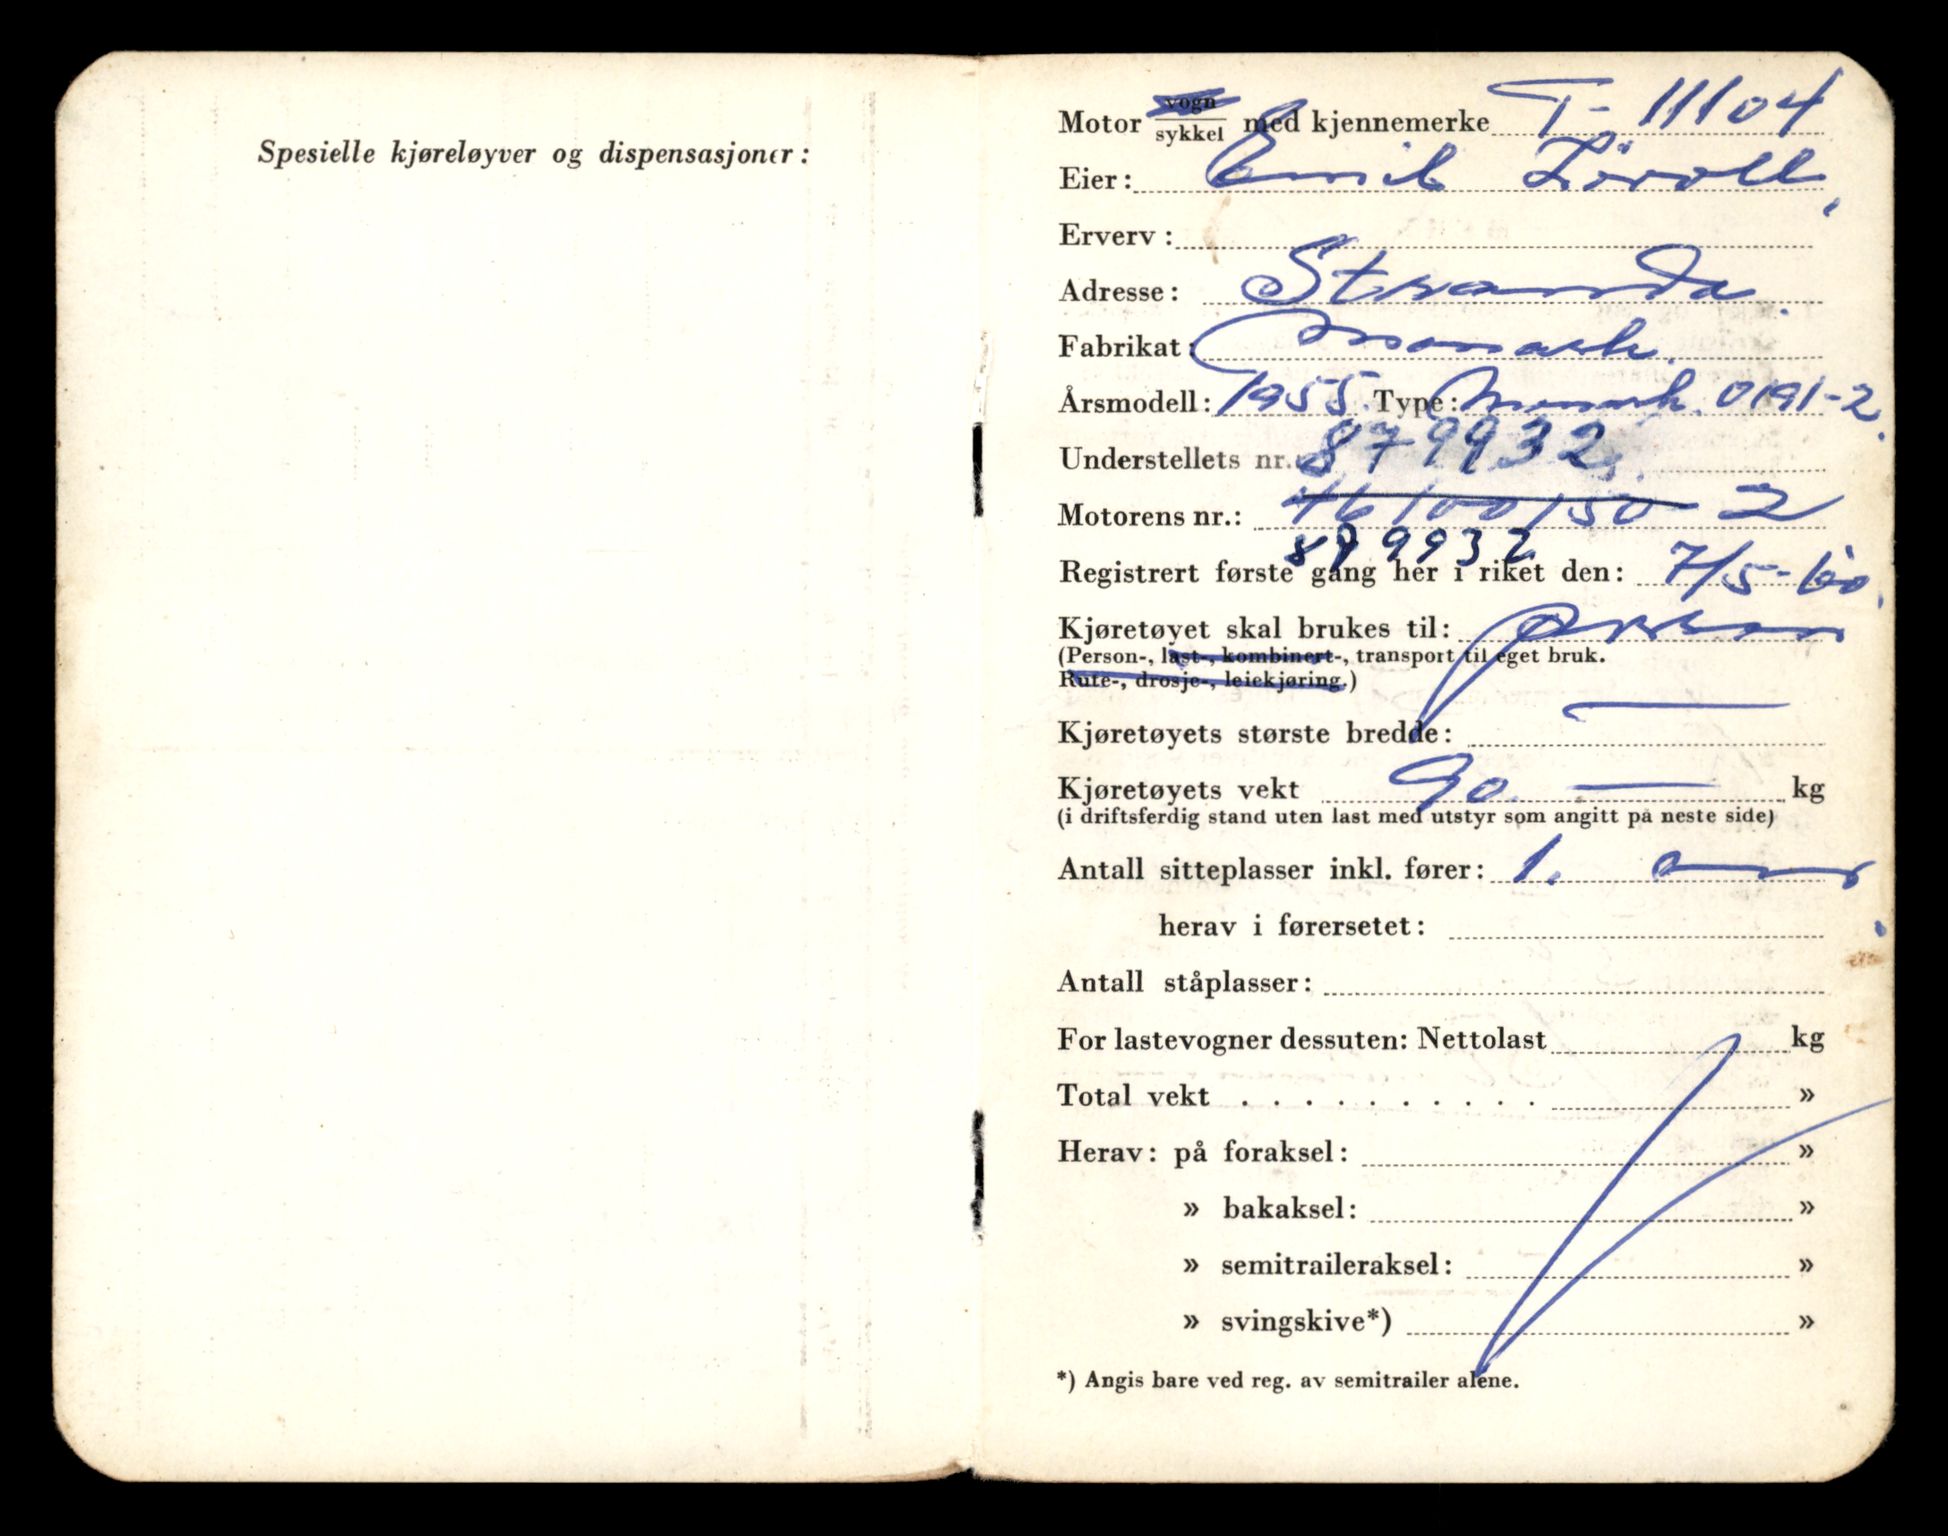 Spesielle kjøreløyver og dispensasjoner:
Motor vogn/sykkel med kjennemerke T- 11104
Eier: Emil
Erverv:
Adresse: Stranda.
Fabrikat: Monark.
Årsmodell: 1955. Type: Monark. 0191-2.
Understellets nr.: 879932
Motorens nr.: 46100150 2
879932
Registrert første gang her i riket den: 7/5-60.
Kjøretøyet skal brukes til: person
(Person-, last-, kombinert-, transport til eget bruk.
Rute-, drosje-, leiekjøring.)
Kjøretøyets største bredde: —
Kjøretøyets vekt 90. — kg
(i driftsferdig stand uten last med utstyr som angitt på neste side)
Antall sitteplasser inkl. fører: 1.
herav i førersetet:
Antall ståplasser:
For lastevogner dessuten: Nettolast kg
Total vekt . . . . . . . . . . »
Herav: på foraksel: »
» bakaksel: »
» semitraileraksel: »
» svingskive*) »
*) Angis bare ved reg. av semitrailer alene.